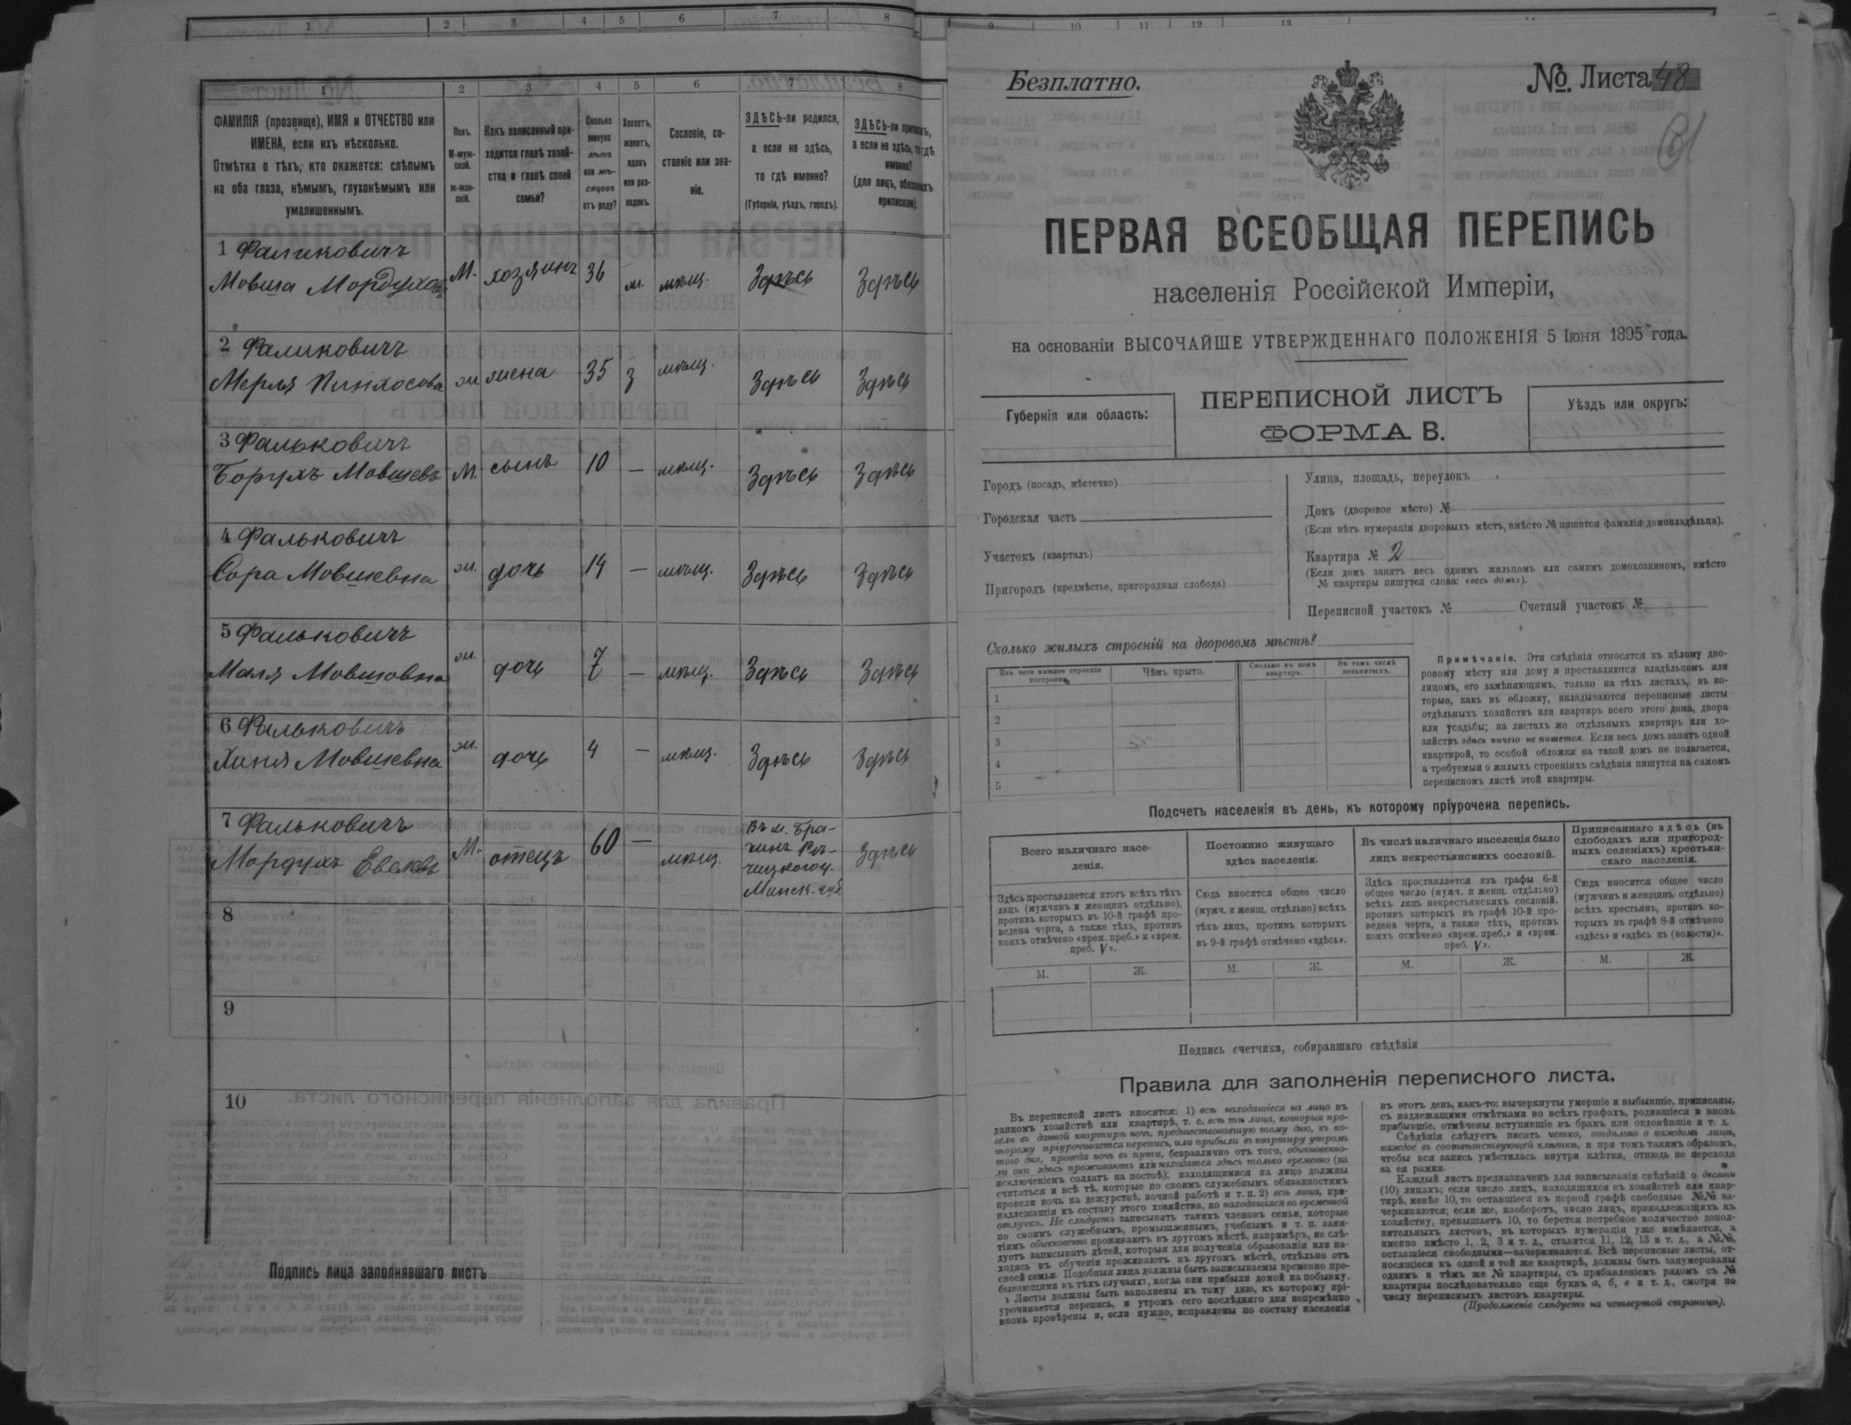 1 2 3 4 5 6 7 8
ФАМИЛІЯ (прозвище), ИМЯ и ОТЧЕСТВО или
ИМЕНА, если ихъ нѣсколько.
Отмѣтка о тѣхъ, кто окажется: слѣпымъ
на оба глаза, нѣмымъ, глухонѣмымъ или
умалишеннымъ.
Полъ.
М-муж-
ской.
ж-жен-
скій.
Какъ записанный при-
ходится главѣ хозяй-
ства и главѣ своей
семьи?
Сколько
минуло
лѣтъ
или мѣ-
сяцевъ
отъ роду?
Холостъ,
женатъ,
вдовъ
или раз-
веденъ.
Сословіе, со-
стояніе или зва-
ніе.
ЗДѢСЬ-ли родился,
а если не здѣсь,
то гдѣ именно?
(Губернія, уѣздъ, городъ).
ЗДѢСЬ-ли приписанъ,
а если не здѣсь, то гдѣ
именно?
(для лицъ, обязанныхъ
припискою).
1 Фаликовичъ
Мовша Мордуховъ М. хозяинъ 36 ж. мѣщ. Здѣсь Здѣсь
2 Фаликовичъ
Мерля Пинхосова ж жена 35 з мѣщ. Здѣсь Здѣсь
3 Фальковичъ
Борухъ Мовшевъ М. сынъ 10 — мѣщ. Здѣсь Здѣсь
4 Фальковичъ
Сора Мовшевна ж. дочь 14 — мѣщ. Здѣсь Здѣсь
5 Фальковичъ
Маля Мовшовна ж. дочь 7 — мѣщ. Здѣсь Здѣсь
6 Фальковичъ
Хиня Мовшевна ж. дочь 4 — мѣщ. Здѣсь Здѣсь
7 Фальковичъ
Мордухъ М. отецъ 60 — мѣщ. Здѣсь
Въ м. Бра-
гинъ Рѣ-
чицкого у.
Минск. губ
8
9
10
Подпись лица заполнявшаго листъ
Безплатно.
№ Листа 48
ПЕРВАЯ ВСЕОБЩАЯ ПЕРЕПИСЬ
населенія Россійской Имперіи,
на основаніи ВЫСОЧАЙШЕ УТВЕРЖДЕННАГО ПОЛОЖЕНІЯ 5 Іюня 1895 года.
Губернія или область:
ПЕРЕПИСНОЙ ЛИСТЪ
ФОРМА В.
Уѣздъ или округъ:
Городъ (посадъ, мѣстечко)
Городская часть
Участокъ (кварталъ)
Пригородъ (предмѣстье, пригородная слобода)
Улица, площадь, переулокъ
Домъ (дворовое мѣсто) №
(Если нѣтъ нумераціи дворовыхъ мѣстъ, вмѣсто № пишется фамилія домовладѣльца).
Квартира № 2
(Если домъ занятъ весь однимъ жильцомъ или самимъ домохозяиномъ, вмѣсто
№ квартиры пишутся слова: «весь домъ»).
Переписной участокъ № Счетный участокъ №
Сколько жилыхъ строеній на дворовомъ мѣстѣ?
Изъ чего каждое строеніе
построено.
Чѣмъ крыто.
Сколько въ немъ
квартиръ.
Въ томъ числѣ
незанятыхъ.
1
2
3
4
5
Примѣчаніе. Эти свѣдѣнія относятся къ цѣлому дво-
ровому мѣсту или дому и проставляются владѣльцемъ или
лицомъ, его замѣняющимъ, только на тѣхъ листахъ, въ ко-
торые, какъ въ обложку, вкладываются переписные листы
отдѣльныхъ хозяйствъ или квартиръ всего этого дома, двора
или усадьбы; на листахъ же отдѣльныхъ квартиръ или хо-
зяйствъ здѣсь ничего не пишется. Если весь домъ занятъ одной
квартирой, то особой обложки на такой домъ не полагается,
а требуемыя о жилыхъ строеніяхъ свѣдѣнія пишутся на самомъ
переписномъ листѣ этой квартиры.
Подсчетъ населенія въ день, къ которому пріурочена перепись.
Всего наличнаго насе-
ленія.
Постоянно живущаго
здѣсь населенія.
Въ числѣ наличнаго населенія было
лицъ некрестьянскихъ сословій.
Приписаннаго здѣсь (въ
слободахъ или пригород-
ныхъ селеніяхъ) крестьян-
скаго населенія.
Здѣсь проставляется итогъ всѣхъ тѣхъ
лицъ (мужчинъ и женщинъ отдѣльно),
противъ которыхъ въ 10-й графѣ про-
ведена черта, а также тѣхъ, противъ
коихъ отмѣчено «врем. преб.» и «врем.
преб. V».
Сюда вносится общее число
(мужч. и женщ. отдѣльно) всѣхъ
тѣхъ лицъ, противъ которыхъ
въ 9-й графѣ отмѣчено «здѣсь».
Здѣсь проставляется изъ графы 6-й
общее число (мужч. и женщ. отдѣльно)
всѣхъ лицъ некрестьянскихъ сословій,
противъ которыхъ въ графѣ 10-й про-
ведена черта, а также тѣхъ, противъ
коихъ отмѣчено «врем. преб.» и «врем.
преб. V».
Сюда вносится общее число
(мужчинъ и женщинъ отдѣльно)
всѣхъ крестьянъ, противъ ко-
торыхъ въ графѣ 8-й отмѣчено
«здѣсь» и «здѣсь къ (волости)».
М. Ж. М. Ж. М. Ж. М. Ж.
Подпись счетчика, собиравшаго свѣдѣнія
Правила для заполненія переписного листа.
Въ переписной листъ вносятся: 1) всѣ находящіеся на лицо въ
данномъ хозяйствѣ или квартирѣ, т. е. всѣ тѣ лица, которыя про-
вели въ данной квартирѣ ночь, предшествовавшую тому дню, къ ко-
торому пріурочивается перепись, или прибыли въ квартиру утромъ
того дня, проведя ночь въ пути, безразлично отъ того, обыкновенно-
ли они здѣсь проживаютъ или находятся здѣсь только временно (за
исключеніемъ солдатъ на постоѣ); находящимися на лицо должны
считаться и всѣ тѣ, которые по своимъ служебнымъ обязанностямъ
провели ночь на дежурствѣ, ночной работѣ и т. п. 2) всѣ лица, при-
надлежащія къ составу этого хозяйства, но находящіяся во временной
отлучкѣ. Не слѣдуетъ записывать такихъ членовъ семьи, которые
по своимъ служебнымъ, промышленнымъ, учебнымъ и т. п. заня-
тіямъ обыкновенно проживаютъ въ другомъ мѣстѣ, напримѣръ, не слѣ-
дуетъ записывать дѣтей, которыя для полученія образованія или на-
ходясь въ обученіи проживаютъ въ другомъ мѣстѣ, отдѣльно отъ
своей семьи. Подобныя лица должны быть записываемы временно пре-
бывающими въ тѣхъ случаяхъ, когда они прибыли домой на побывку.
Листы должны быть заполнены къ тому дню, къ которому прі-
урочивается перепись, и утромъ сего послѣдняго дня непремѣнно
вновь провѣрены и, если нужно, исправлены по составу населенія
въ этотъ день, какъ-то: вычеркнуты умершіе и выбывшіе, приписаны,
съ надлежащими отмѣтками во всѣхъ графахъ, родившіеся и вновь
прибывшіе, отмѣчены вступившіе въ бракъ или овдовѣвшіе и т. д.
Свѣдѣнія слѣдуетъ писать четко, отдѣльно о каждомъ лицѣ,
каждое въ соотвѣтствующей клѣткѣ, и при томъ такимъ образомъ,
чтобы вся запись умѣстилась внутри клѣтки, отнюдь не переходя
за ея рамки.
Каждый листъ предназначенъ для записыванія свѣдѣній о десяти
(10) лицахъ; если число лицъ, находящихся въ хозяйствѣ или квар-
тирѣ, менѣе 10, то оставшіеся въ первой графѣ свободные №№ за-
черкиваются; если же, наоборотъ, число лицъ, принадлежащихъ къ
хозяйству, превышаетъ 10, то берется потребное количество допол-
нительныхъ листовъ, въ которыхъ нумерація уже измѣняется, а
именно вмѣсто 1, 2, 3 и т. д., ставится 11, 12, 13 и т. д., а №№,
оставшіеся свободными—зачеркиваются. Всѣ переписные листы, от-
носящіеся къ одной и той же квартирѣ, должны быть занумерованы
однимъ и тѣмъ же № квартиры, съ прибавленіемъ рядомъ съ №
квартиры послѣдовательно еще буквъ а, б, в и т. д., смотря по
числу переписныхъ листовъ квартиры.
(Продолженіе слѣдуетъ на четвертой страницѣ).